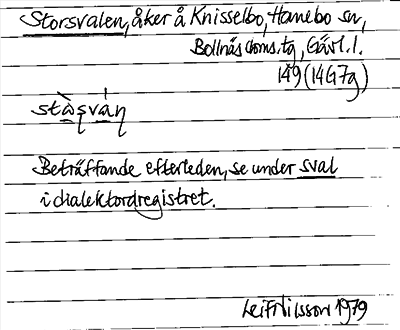 Storsvalen, åker å Knisselbo, Hanebo sn,
Bollnäs doms.tg, Gävl.l.
149 (14G7g)
stàʂván
Beträffande efterleden, se under sval
i dialektordregistret.
Leif Nilsson 1979